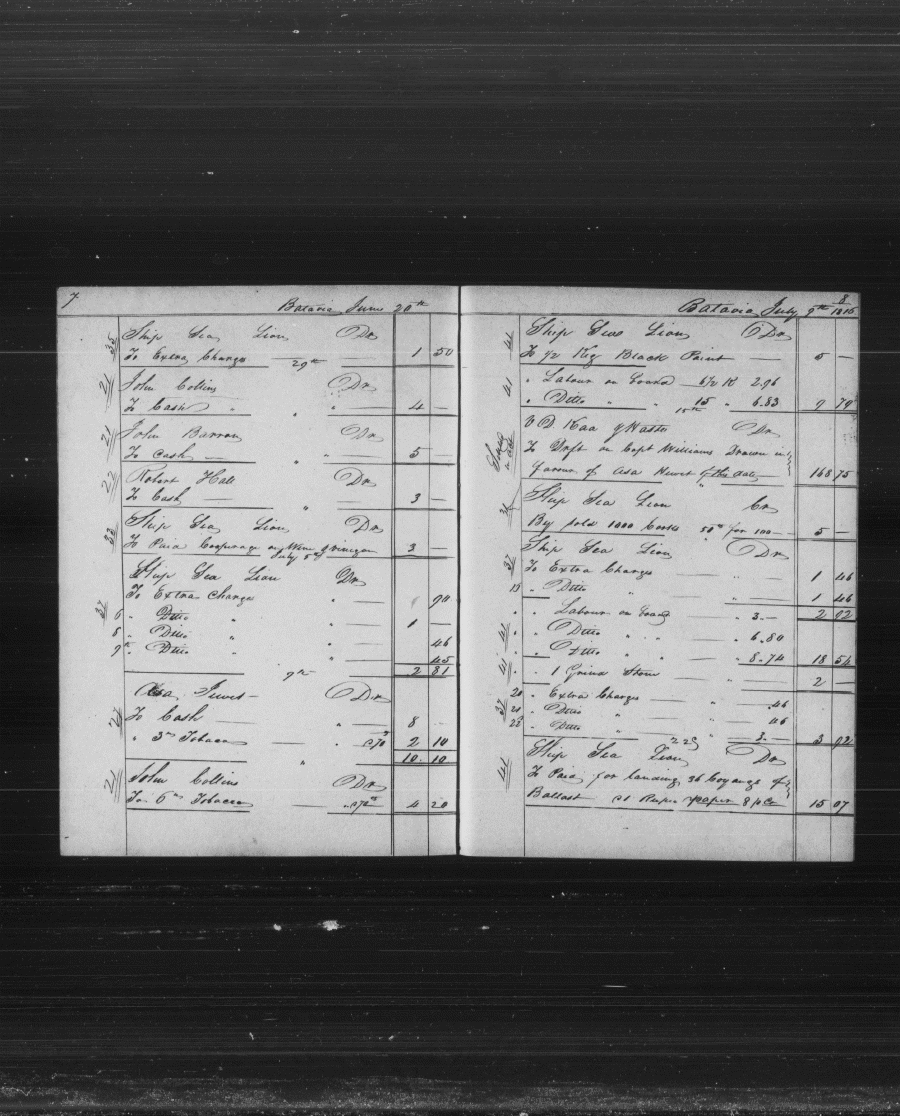 7
Batavia June 28th
35 Ship Sea Lion Dr
To Extra Charges 1 50
29th
21 John Collins Dr
To Cash " " " 4 —
21 John Barron Dr
To Cash — 5 —
" "
22 Robert Hall Dr
To Cash — 3 —
"
33 Ship Sea Lion Dr
To Paid Cooperage on Wine & vinegar 3 —
July 5th
Ship Sea Lion Dr
37 To Extra Charges " — 90
6 " Ditto " " — 1 —
8 " Ditto " — 46
9th " Ditto " " — 45
2 81
9th
Asa Jewet — Dr
24 To Cash — " — 8 —
" 3 Tobacco — " @70 2 10
10.10
"
21 John Collins Dr
To 6 Tobacco — " @70 4 20
8
Batavia July 9th 1816
41 Ship Sea Lion Dr
To 1/2 Keg Black Paint — 5 —
41 " Labour on Board — 6 1/2 R 2.96
" Ditto " " 15 " 6.83 9 79
15th
V D Kaa & Hasts Dr
To Drft on Capt Williams Drawn in
favour of Asa Jewet of this date 168 75
"
Ship Sea Lion Cr
By sold 1000 Corks 50 for 100 — 5 —
37 Ship Sea Lion Dr
To Extra Charges — " — 1 46
15 " Ditto — " — 1 46
2 92
" " Labour on Board — " 3.—
41 " " Ditto " " — " 6.80
" " Ditto — " 8.74 18 54
41 " " 1 Grind Stone — 2 —
20 " Extra Charges — .46
37 21 " Ditto " — " .46
22 " Ditto " — " 3.— 3 92
22d
41 Ship Sea Lion Dr
To Paid for landing 36 Coyangs of
Ballast @1 Rupe 8 p Ct 15 07